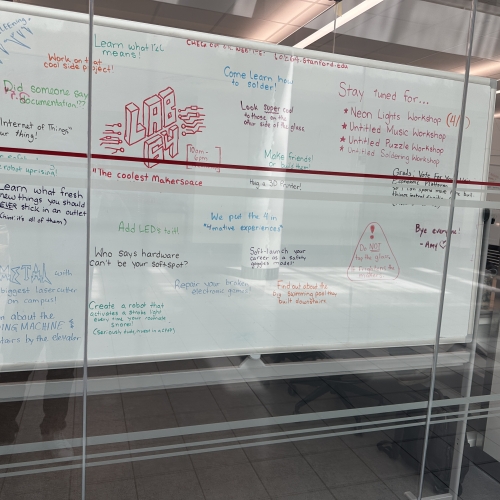 Learn what TeL
means!
Work on that
cool side project!
Did someone say
documentation!?
"Internet of Things"
our thing!
robot uprising!
Learn what fresh
new things you should
NEVER stick in an outlet
(hint: it's all of them)
METAL with
biggest laser cutter
on campus!
about the
MACHINE &
stairs by the elevator
LAB
64
[10am-
6pm]
"The coolest Makerspace
Add LEDs to it!
Who says hardware
can't be your softspot?
Create a robot that
activates a strobe light
every time your roommate
snores!
Come learn how
to solder!
Look super cool
to those on the
other side of the glass
Make friends!
Hug a 3D Printer!
We put the 4! in
"4motive experiences"
Soft-launch your
career as a safety
goggles model
Repair your broken
electronic games!
Find out about the
big swimming pool
built downstairs
stanford.edu
Stay tuned for...
★ Neon Lights Workshop
★ Untitled Music Workshop
★ Untitled Puzzle Workshop
★ Untitled Soldering Workshop
Bye everyone!
- Amy
!
Do NOT
tap the glass